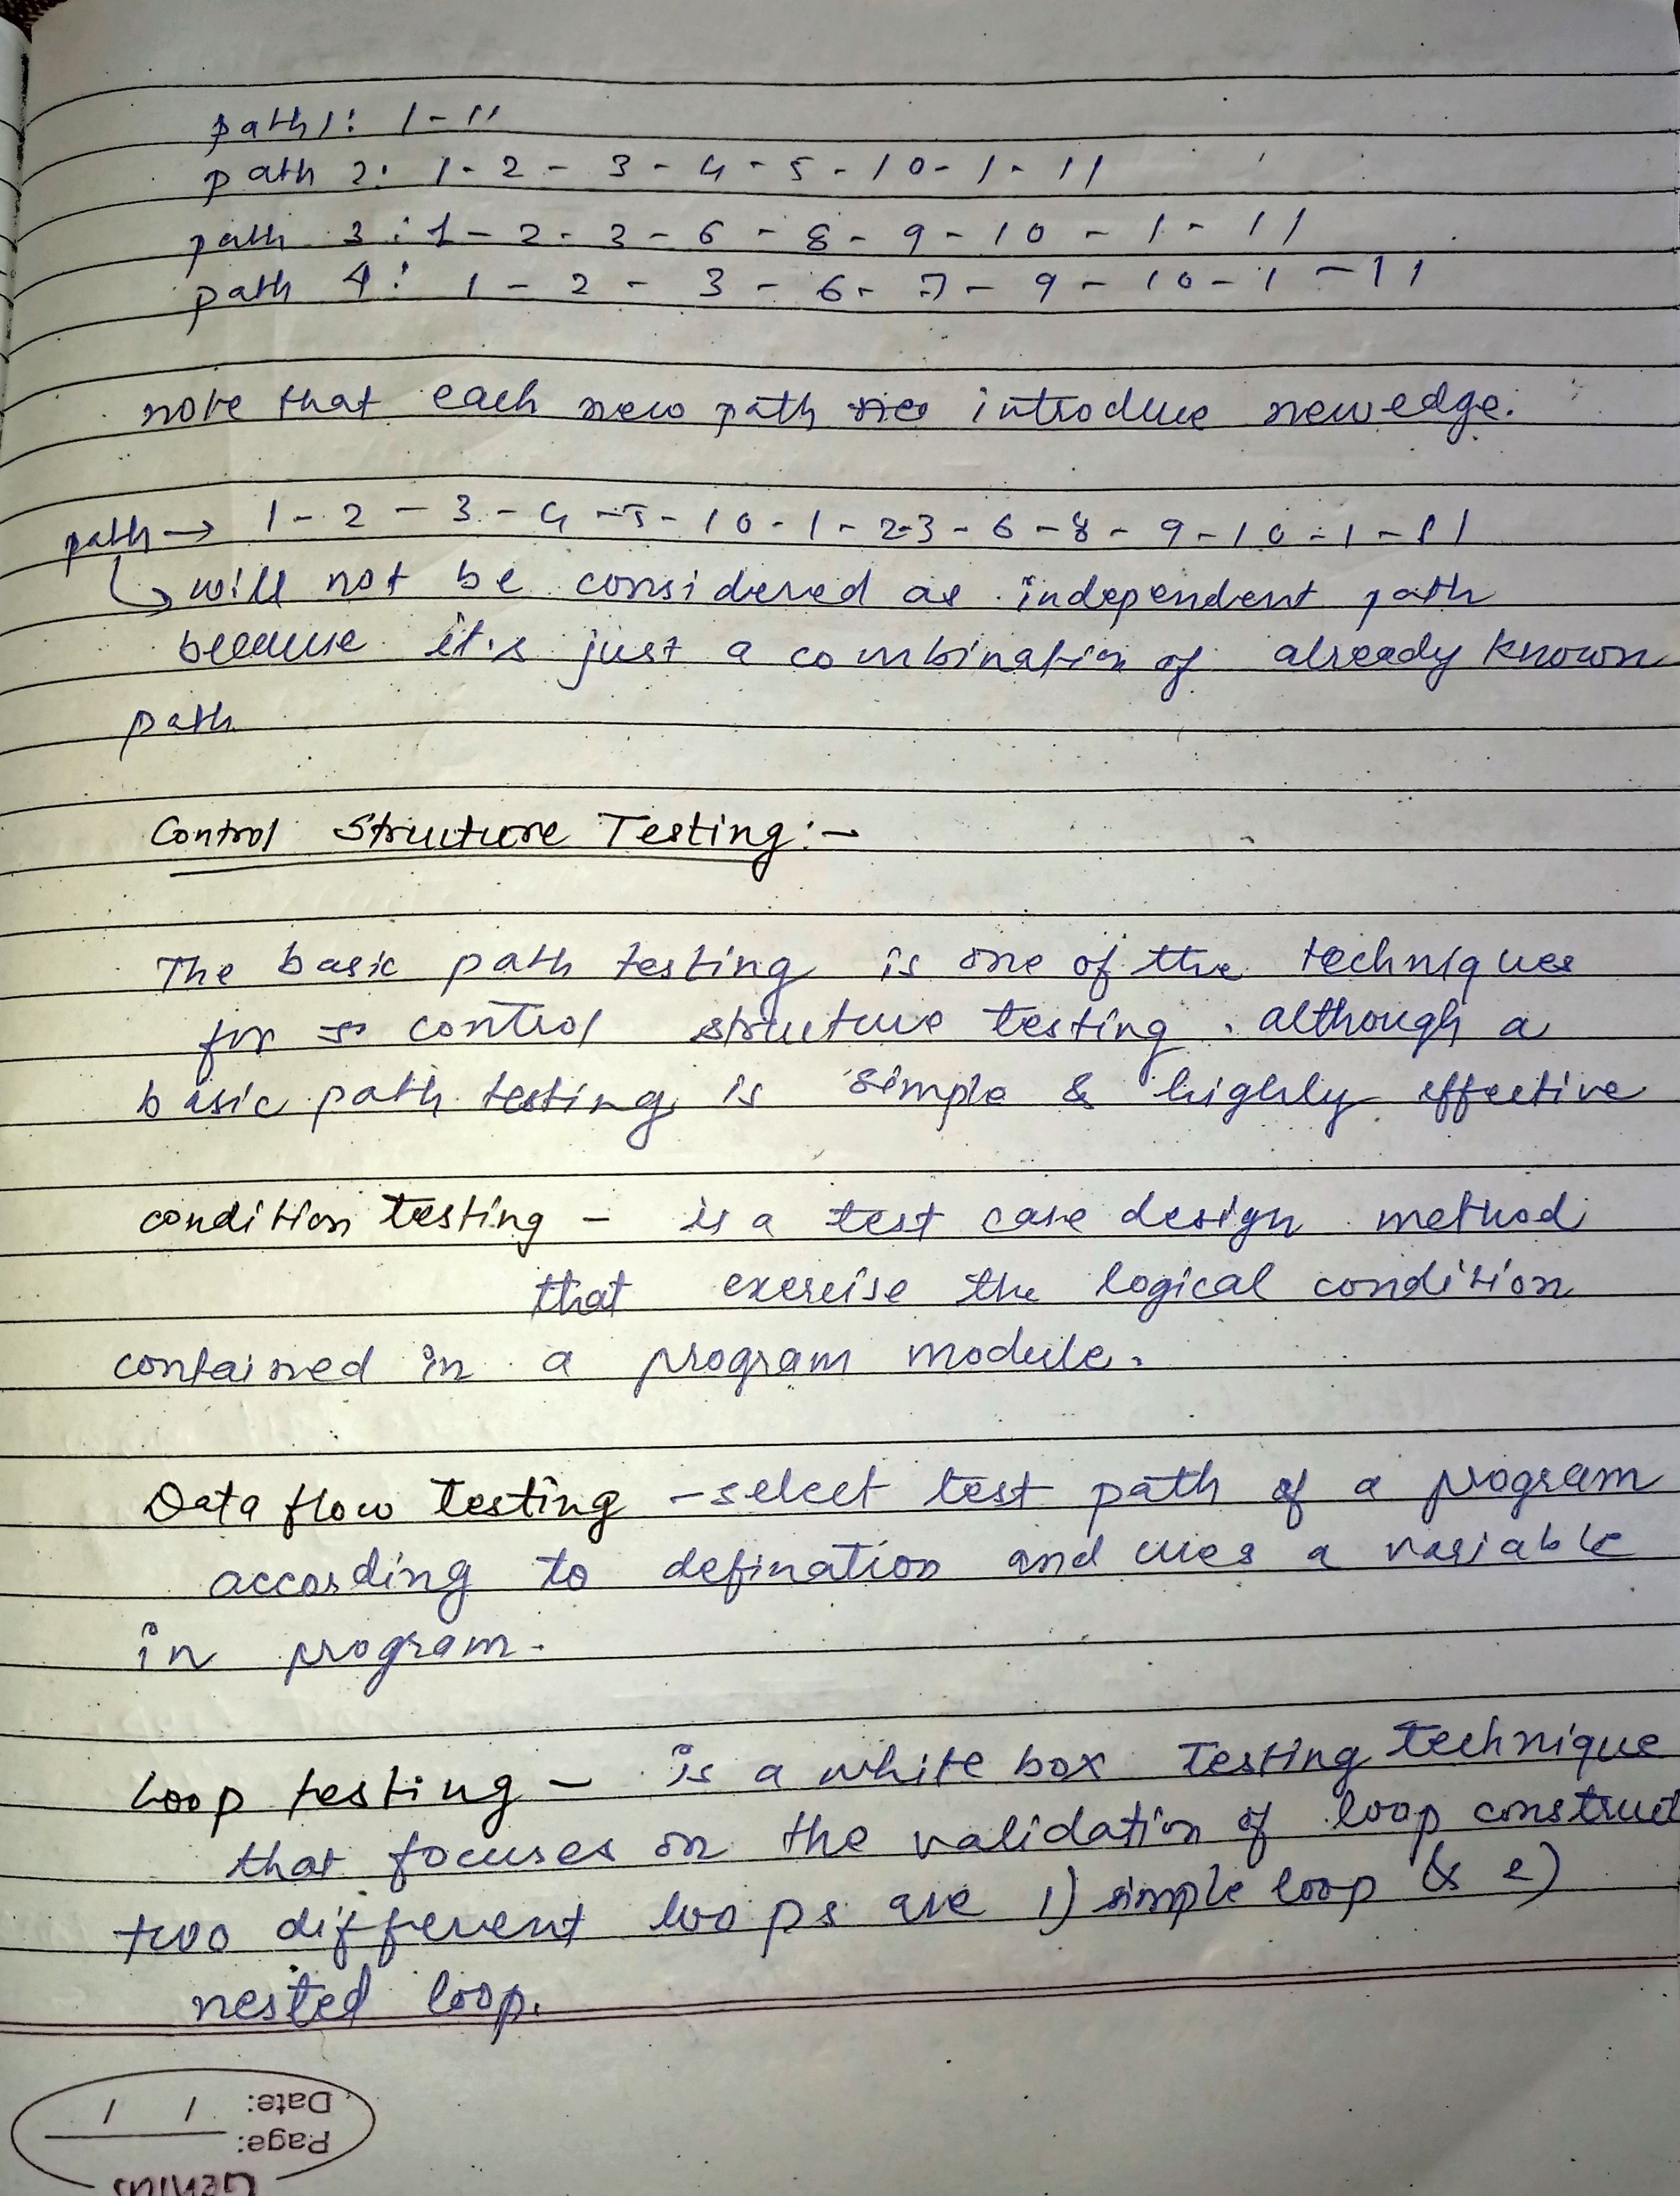 path 1: 1 - 11
path 2: 1 - 2 - 3 - 4 - 5 - 10 - 1 - 11
path 3: 1 - 2 - 3 - 6 - 8 - 9 - 10 - 1 - 11
path 4: 1 - 2 - 3 - 6 - 7 - 9 - 10 - 1 - 11
note that each new path introduce new edge.
path → 1 - 2 - 3 - 4 - 5 - 10 - 1 - 2-3 - 6 - 8 - 9 - 10 - 1 - 11
will not be considered as independent path
because it's just a combination of already known
path
Control Structure Testing:-
The basic path testing is one of the techniques
for control structure testing. although a
basic path testing is simple & highly effective
condition testing - is a test case design method
that exercise the logical condition
contained in a program module.
Data flow Testing - select test path of a program
according to defination and uses a variable
in program.
Loop testing - is a white box Testing technique
that focuses on the validation of loop construct
two different loops are 1) simple loop & 2)
nested loop.
Date: / /
Page:
GENIUS